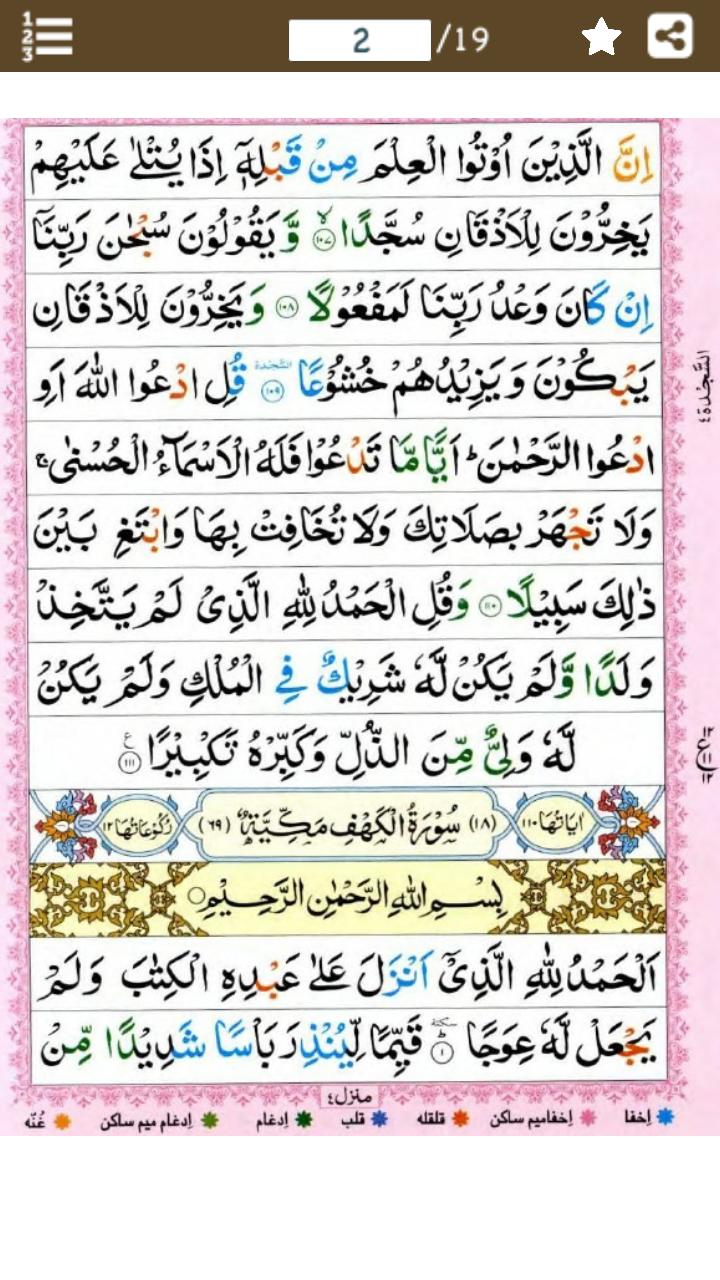 1
2
3
2 /19
اِنَّ الَّذِيْنَ اُوْتُوا الْعِلْمَ مِنْ قَبْلِهٖۤ اِذَا يُتْلٰى عَلَيْهِمْ
يَخِرُّوْنَ لِلْاَذْقَانِ سُجَّدًا ۙ‏﴿۱۰۷﴾ وَّيَقُوْلُوْنَ سُبْحٰنَ رَبِّنَاۤ
اِنْ كَانَ وَعْدُ رَبِّنَا لَمَفْعُوْلًا ‏﴿۱۰۸﴾ وَيَخِرُّوْنَ لِلْاَذْقَانِ
يَبْكُوْنَ وَيَزِيْدُهُمْ خُشُوْعًا السَّجْدَة ‏﴿۱۰۹﴾ قُلِ ادْعُوا اللّٰهَ اَوِ
ادْعُوا الرَّحْمٰنَ ؕ اَيًّا مَّا تَدْعُوْا فَلَهُ الْاَسْمَآءُ الْحُسْنٰى ۚ
وَلَا تَجْهَرْ بِصَلَاتِكَ وَلَا تُخَافِتْ بِهَا وَابْتَغِ بَيْنَ
ذٰلِكَ سَبِيْلًا ‏﴿۱۱۰﴾ وَقُلِ الْحَمْدُ لِلّٰهِ الَّذِىْ لَمْ يَتَّخِذْ
وَلَدًا وَّلَمْ يَكُنْ لَّهٗ شَرِيْكٌ فِى الْمُلْكِ وَلَمْ يَكُنْ
لَّهٗ وَلِىٌّ مِّنَ الذُّلِّ وَكَبِّرْهُ تَكْبِيْرًا ‏﴿۱۱۱﴾ ع
اٰيَاتُهَا ۱۱۰ (۱۸) سُوْرَةُ الْكَهْفِ مَكِّيَّةٌ (۶۹) رُكُوْعَاتُهَا ۱۲
بِسْمِ اللّٰهِ الرَّحْمٰنِ الرَّحِيْمِ
اَلْحَمْدُ لِلّٰهِ الَّذِىْۤ اَنْزَلَ عَلٰى عَبْدِهِ الْكِتٰبَ وَلَمْ
يَجْعَلْ لَّهٗ عِوَجًا ؕ سكتة ‏﴿۱﴾ قَيِّمًا لِّيُنْذِرَ بَاْسًا شَدِيْدًا مِّنْ
السَّجْدَة ٤
منزل ٤
اِخفا اِخفامیم ساکن قلقله قلب اِدغام اِدغام میم ساکن غُنّه